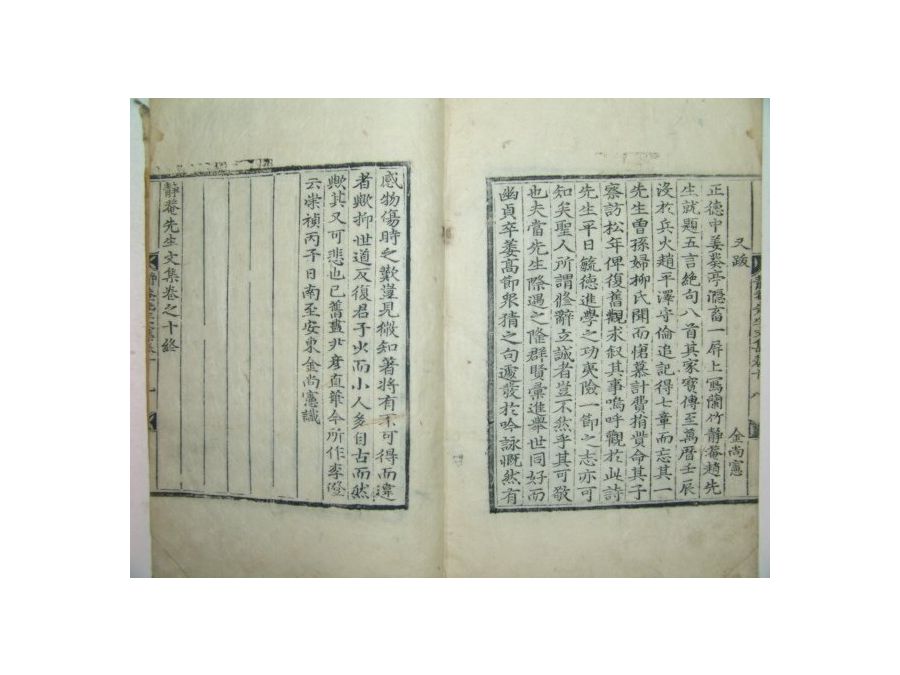 又跋
金尚憲
正德中姜葵亭隱畜一屛上寫蘭竹靜菴趙先
生就題五言絶句八首其家寶傳至萬曆壬辰
沒於兵火趙平澤守倫追記得七章而忘其一
先生曾孫婦柳氏聞而傷慕計費捐貲命其子
察訪松年俾復舊觀求叙其事嗚呼觀於此詩
先生平日毓德進學之功夷險一節之志亦可
知矣聖人所謂脩辭立誠者豈不然乎其可敬
也夫當先生際遇之隆群賢彙進擧世同好而
幽貞卒萎高節衆猜之句遽發於吟詠慨然有
感物傷時之歎豈見微知著將有不可得而違
者歟抑世道反復君子少而小人多自古而然
歟其又可悲也已舊畫北彦直筆今所作李澄
云崇禎丙子日南至安東金尚憲識
靜菴先生文集卷之十終